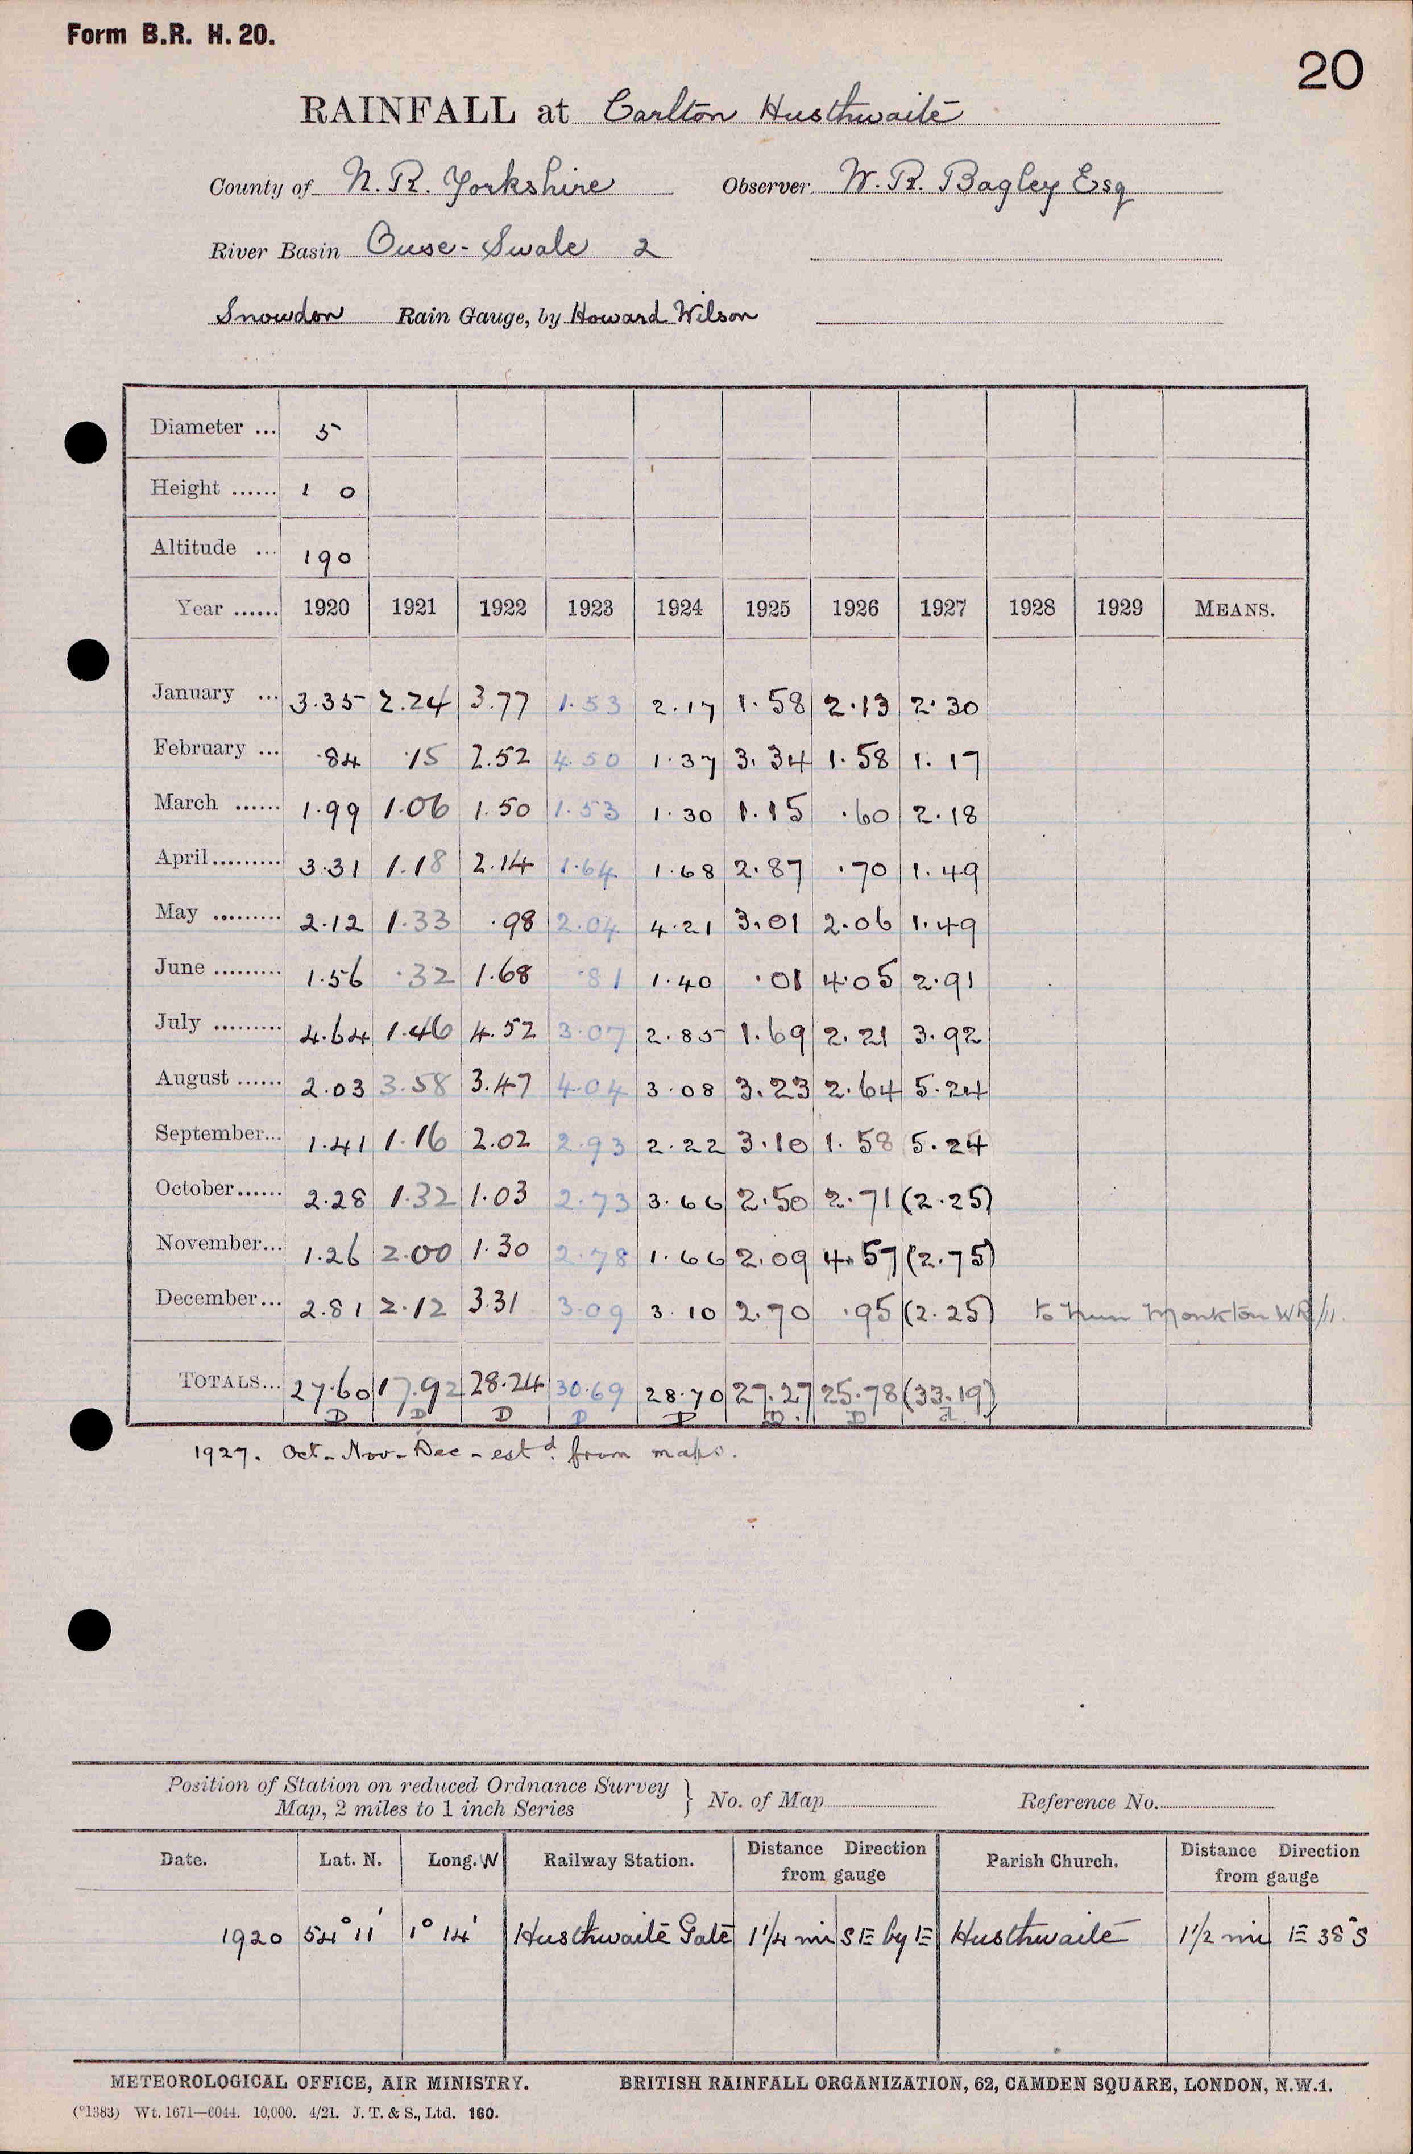 Form B.R. H. 20.
20
RAINFALL at Carlton Husthwaite
County of N. R. Yorkshire Observer W. R. Bagley Esq
River Basin Ouse - Swale 2
Snowdon Rain Gauge, by Howard Wilson
Diameter ... 5
Height ...... 1 0
Altitude ... 190
Year ...... 1920 1921 1922 1923 1924 1925 1926 1927 1928 1929 MEANS.
January ... 3.35 2.24 3.77 1.53 2.17 1.58 2.13 2.30
February ... .84 .15 2.52 4.50 1.37 3.34 1.58 1.17
March ...... 1.99 1.06 1.50 1.53 1.30 1.15 .60 2.18
April......... 3.31 1.18 2.14 1.64 1.68 2.87 .70 1.49
May ......... 2.12 1.33 .98 2.04 4.21 3.01 2.06 1.49
June ......... 1.56 .32 1.68 .81 1.40 .01 4.05 2.91
July ......... 4.64 1.46 4.52 3.07 2.85 1.69 2.21 3.92
August ...... 2.03 3.58 3.47 4.04 3.08 3.23 2.64 5.24
September... 1.41 1.16 2.02 2.93 2.22 3.10 1.58 5.24
October...... 2.28 1.32 1.03 2.73 3.66 2.50 2.71 (2.25)
November... 1.26 2.00 1.30 2.78 1.66 2.09 4.57 (2.75)
December... 2.81 2.12 3.31 3.09 3.10 2.70 .95 (2.25) to Nun Monkton WR/11.
TOTALS... 27.60 17.92 28.24 30.69 28.70 27.27 25.78 (33.19)
D D D D D D D
1927. Oct - Nov - Dec - estd. from maps.
Position of Station on reduced Ordnance Survey
Map, 2 miles to 1 inch Series } No. of Map Reference No.
Date. Lat. N. Long. W Railway Station. Distance Direction from gauge Parish Church. Distance Direction from gauge
1920 54° 11' 1° 14' Husthwaite Gate 1 1/4 mi SE by E Husthwaite 1 1/2 mi E 38° S
METEOROLOGICAL OFFICE, AIR MINISTRY. BRITISH RAINFALL ORGANIZATION, 62, CAMDEN SQUARE, LONDON, N.W.1.
(*1383) Wt. 1671—6044. 10,000. 4/21. J. T. & S., Ltd. 160.